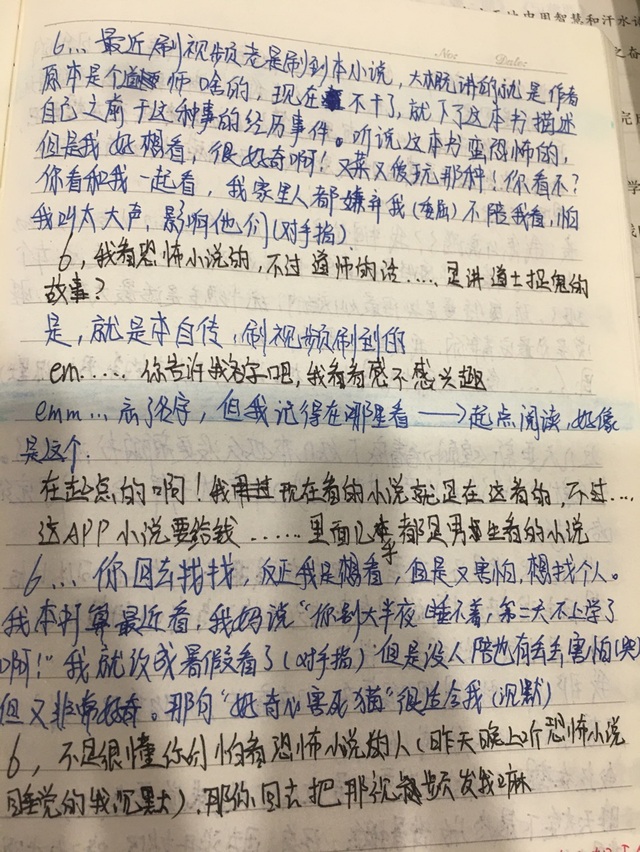 中用智慧和汗水
No:
Date:
6… 最近刷视频老是刷到本小说，大概讲的就是作者
原本是个道师啥的，现在不干了，就下了这本书描述
自己之前干这种事的经历事件。听说这本书蛮恐怖的，
但是我好想看，很好奇啊！又菜又爱玩那种！你看不？
你看和我一起看，我家里人都嫌弃我(委屈)不陪我看，怕
我叫太大声，影响他们(对手指)
6，我看恐怖小说的，不过道师的话.....是讲道士捉鬼的
故事？
是，就是本自传，刷视频刷到的
em..... 你告诉我名字吧，我看看感不感兴趣
emm... 忘了名字，但我记得在哪里看 → 起点阅读，好像
是这个.
在起点的啊！我现在看的小说就是在这看的，不过....
这APP小说要给钱 ...... 里面几乎都是男生看的小说
6... 你回去找找，反正我是想看，但是又害怕，想找个人。
我本打算最近看，我妈说“你别大半夜睡不着，第二天不上学了
啊！”我就改成暑假看了(对手指)但是没人陪也有丢丢害怕(哭)
但又非常好奇。那句“好奇心害死猫”很适合我(沉默)
6，不是很懂你们怕看恐怖小说的人(昨天晚上2个恐怖小说
睡觉的我沉默)．那你回去把那视频发我2嘛